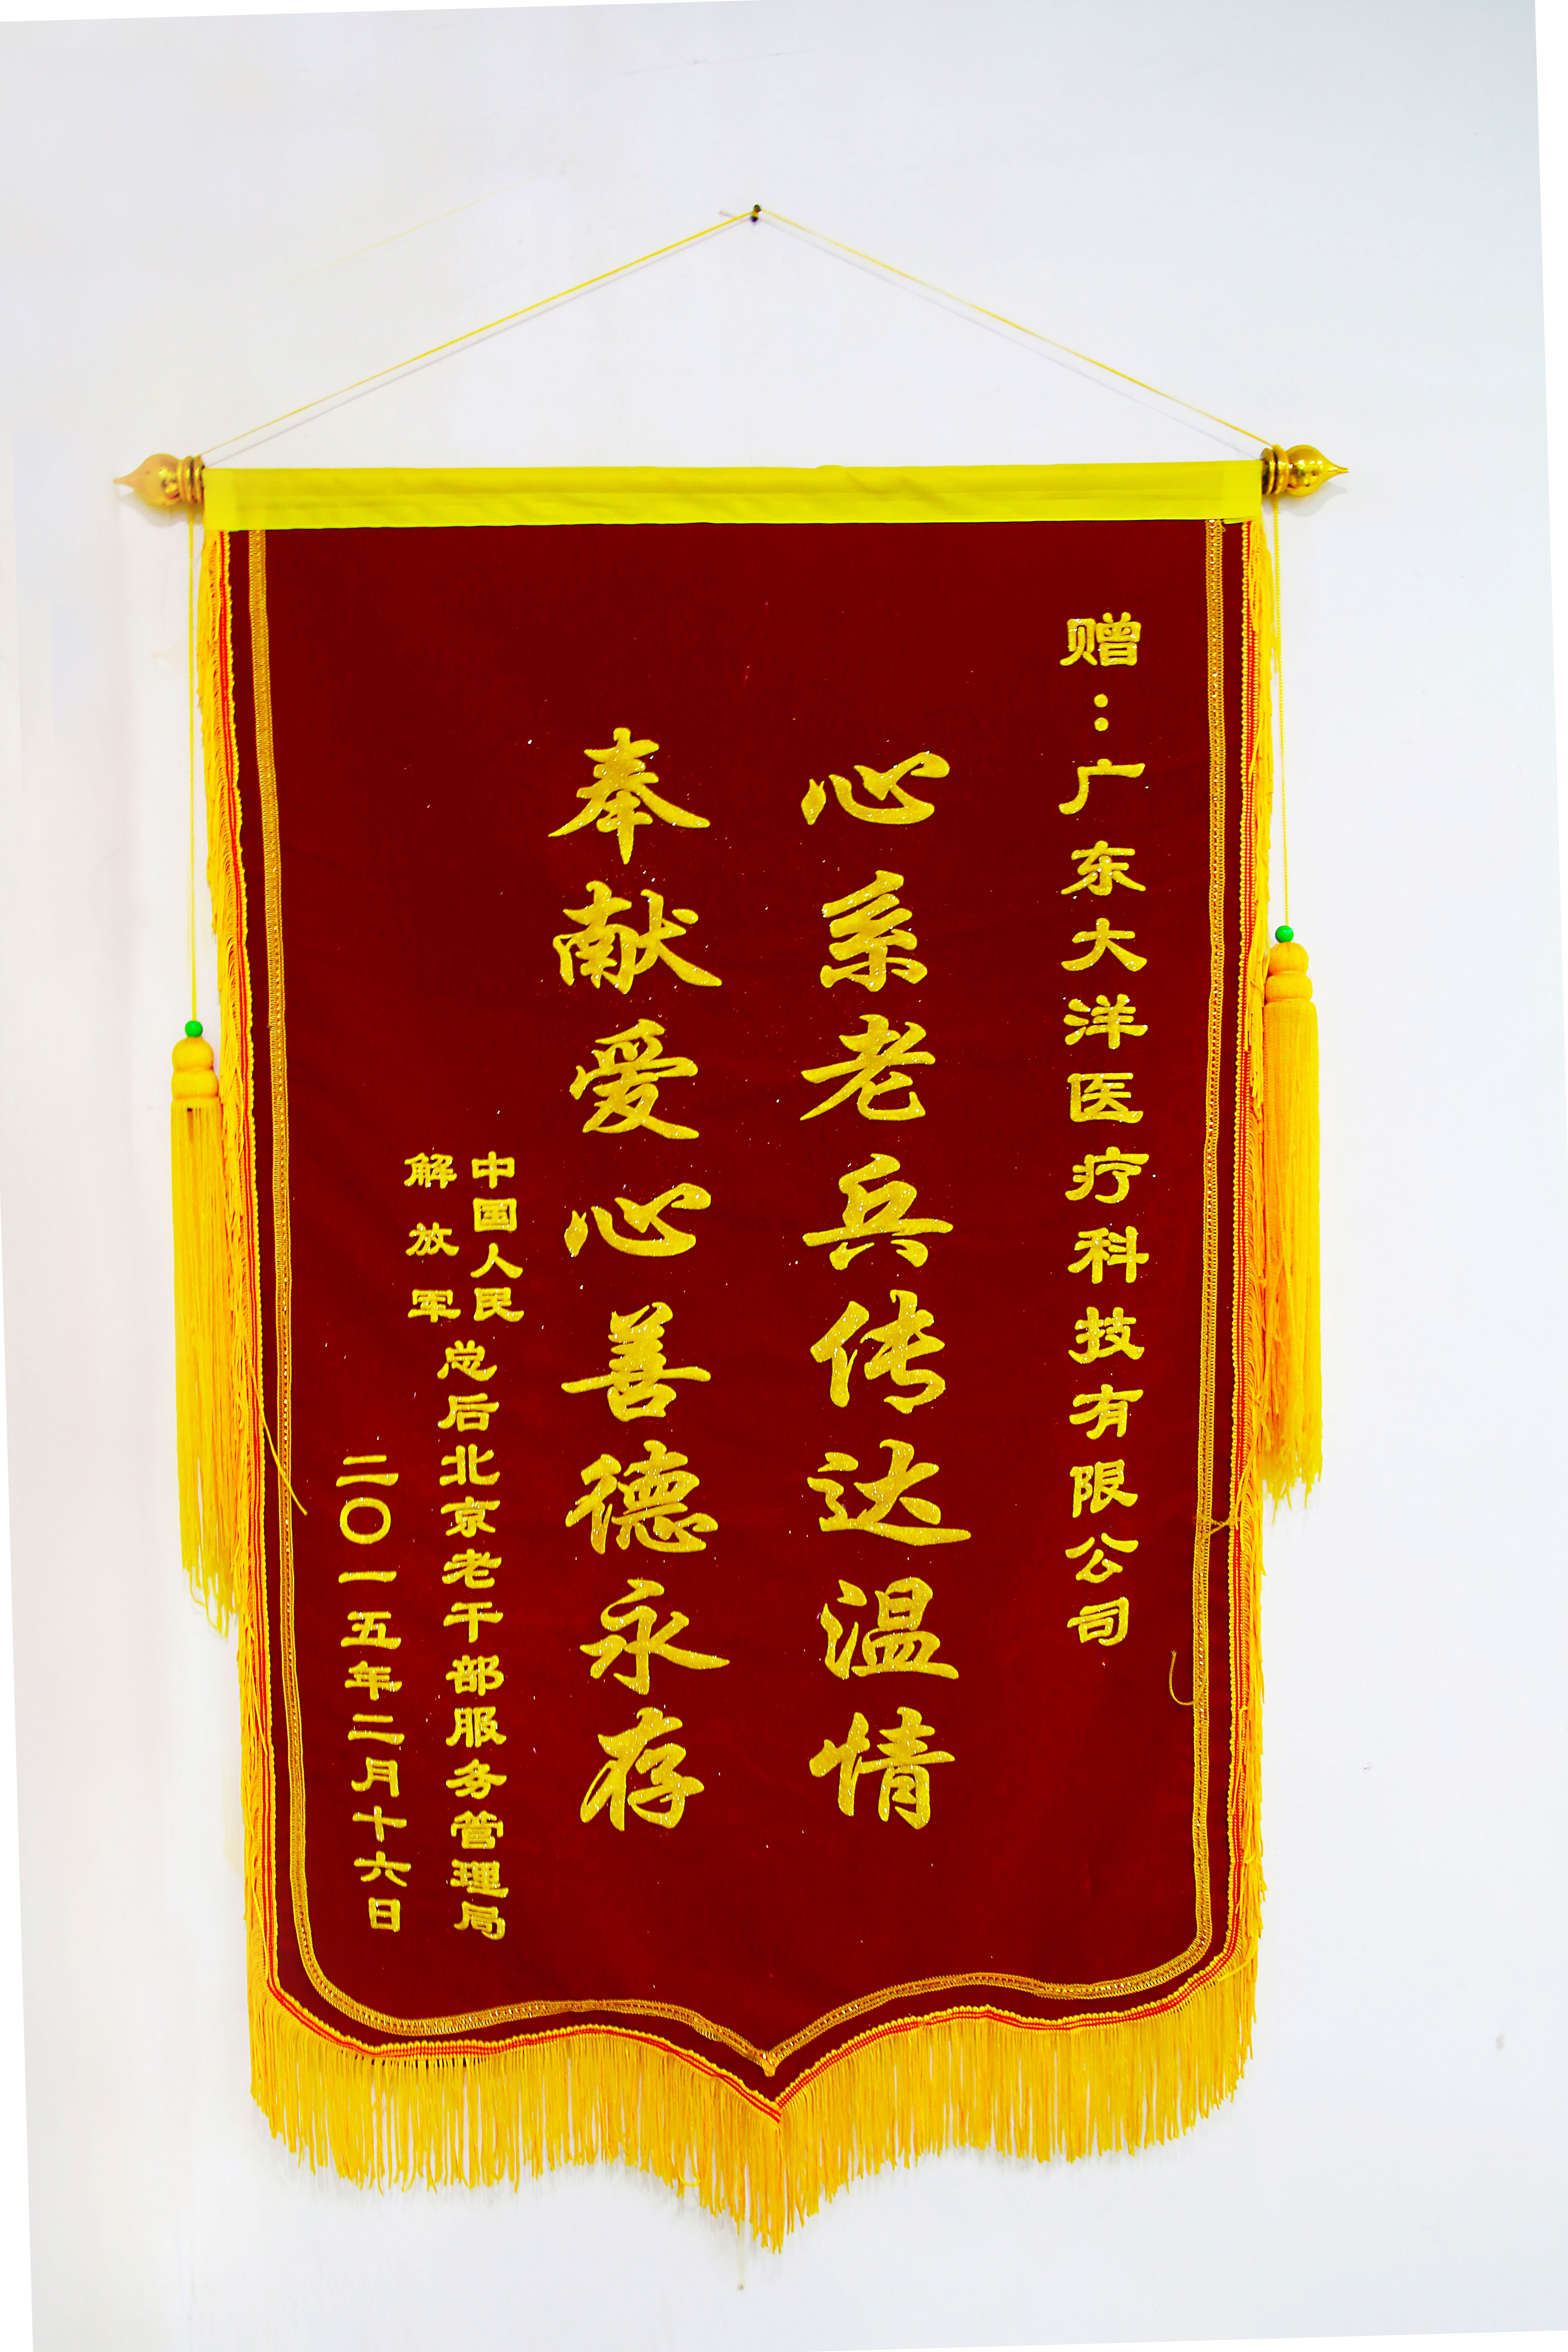 赠：广东大洋医疗科技有限公司
心系老兵传达温情
奉献爱心善德永存
中国人民
解放军
总后北京老干部服务管理局
二〇一五年二月十六日